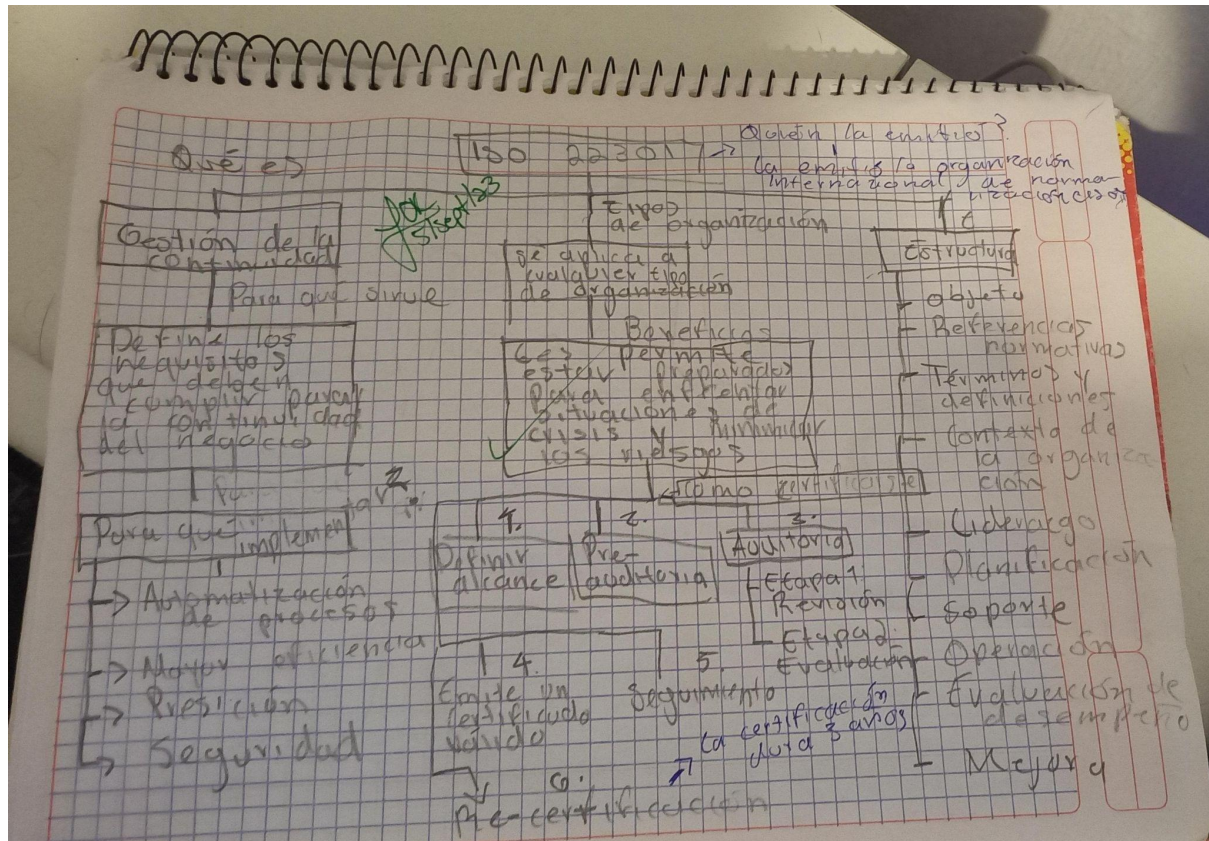 Qué es
ISO 22301
Quién la emitió?
la emitió la organización
internacional de norma
lización (ISO)
ok
5/sept/23
Gestión de la
continuidad
Para qué sirve
Define los
requisitos
que deben
cumplir para
la continuidad
del negocio
Para qué implementar?
→ Automatización
de procesos
→ Mayor eficiencia
→ Presición
→ Seguridad
tipos
de organización
Se aplica a
cualquier tipo
de organización
Beneficios
Les permite
estar preparados
para enfrentar
situaciones de
crisis y minimizar
los riesgos
Como certificarse
1.
Definir
alcance
2.
Pre-
auditoria
3.
Auditoria
Etapa 1
Revisión
Etapa 2.
Evaluación
4.
Emite un
certificado
válido
5.
Seguimiento
la certificación
dura 3 años
6.
Re-certificación
Estructura
Objeto
Referencias
normativas
Términos y
definiciones
Contexto de
la organiza
ción
Liderazgo
Planificación
Soporte
Operación
Evaluación de
desempeño
Mejora